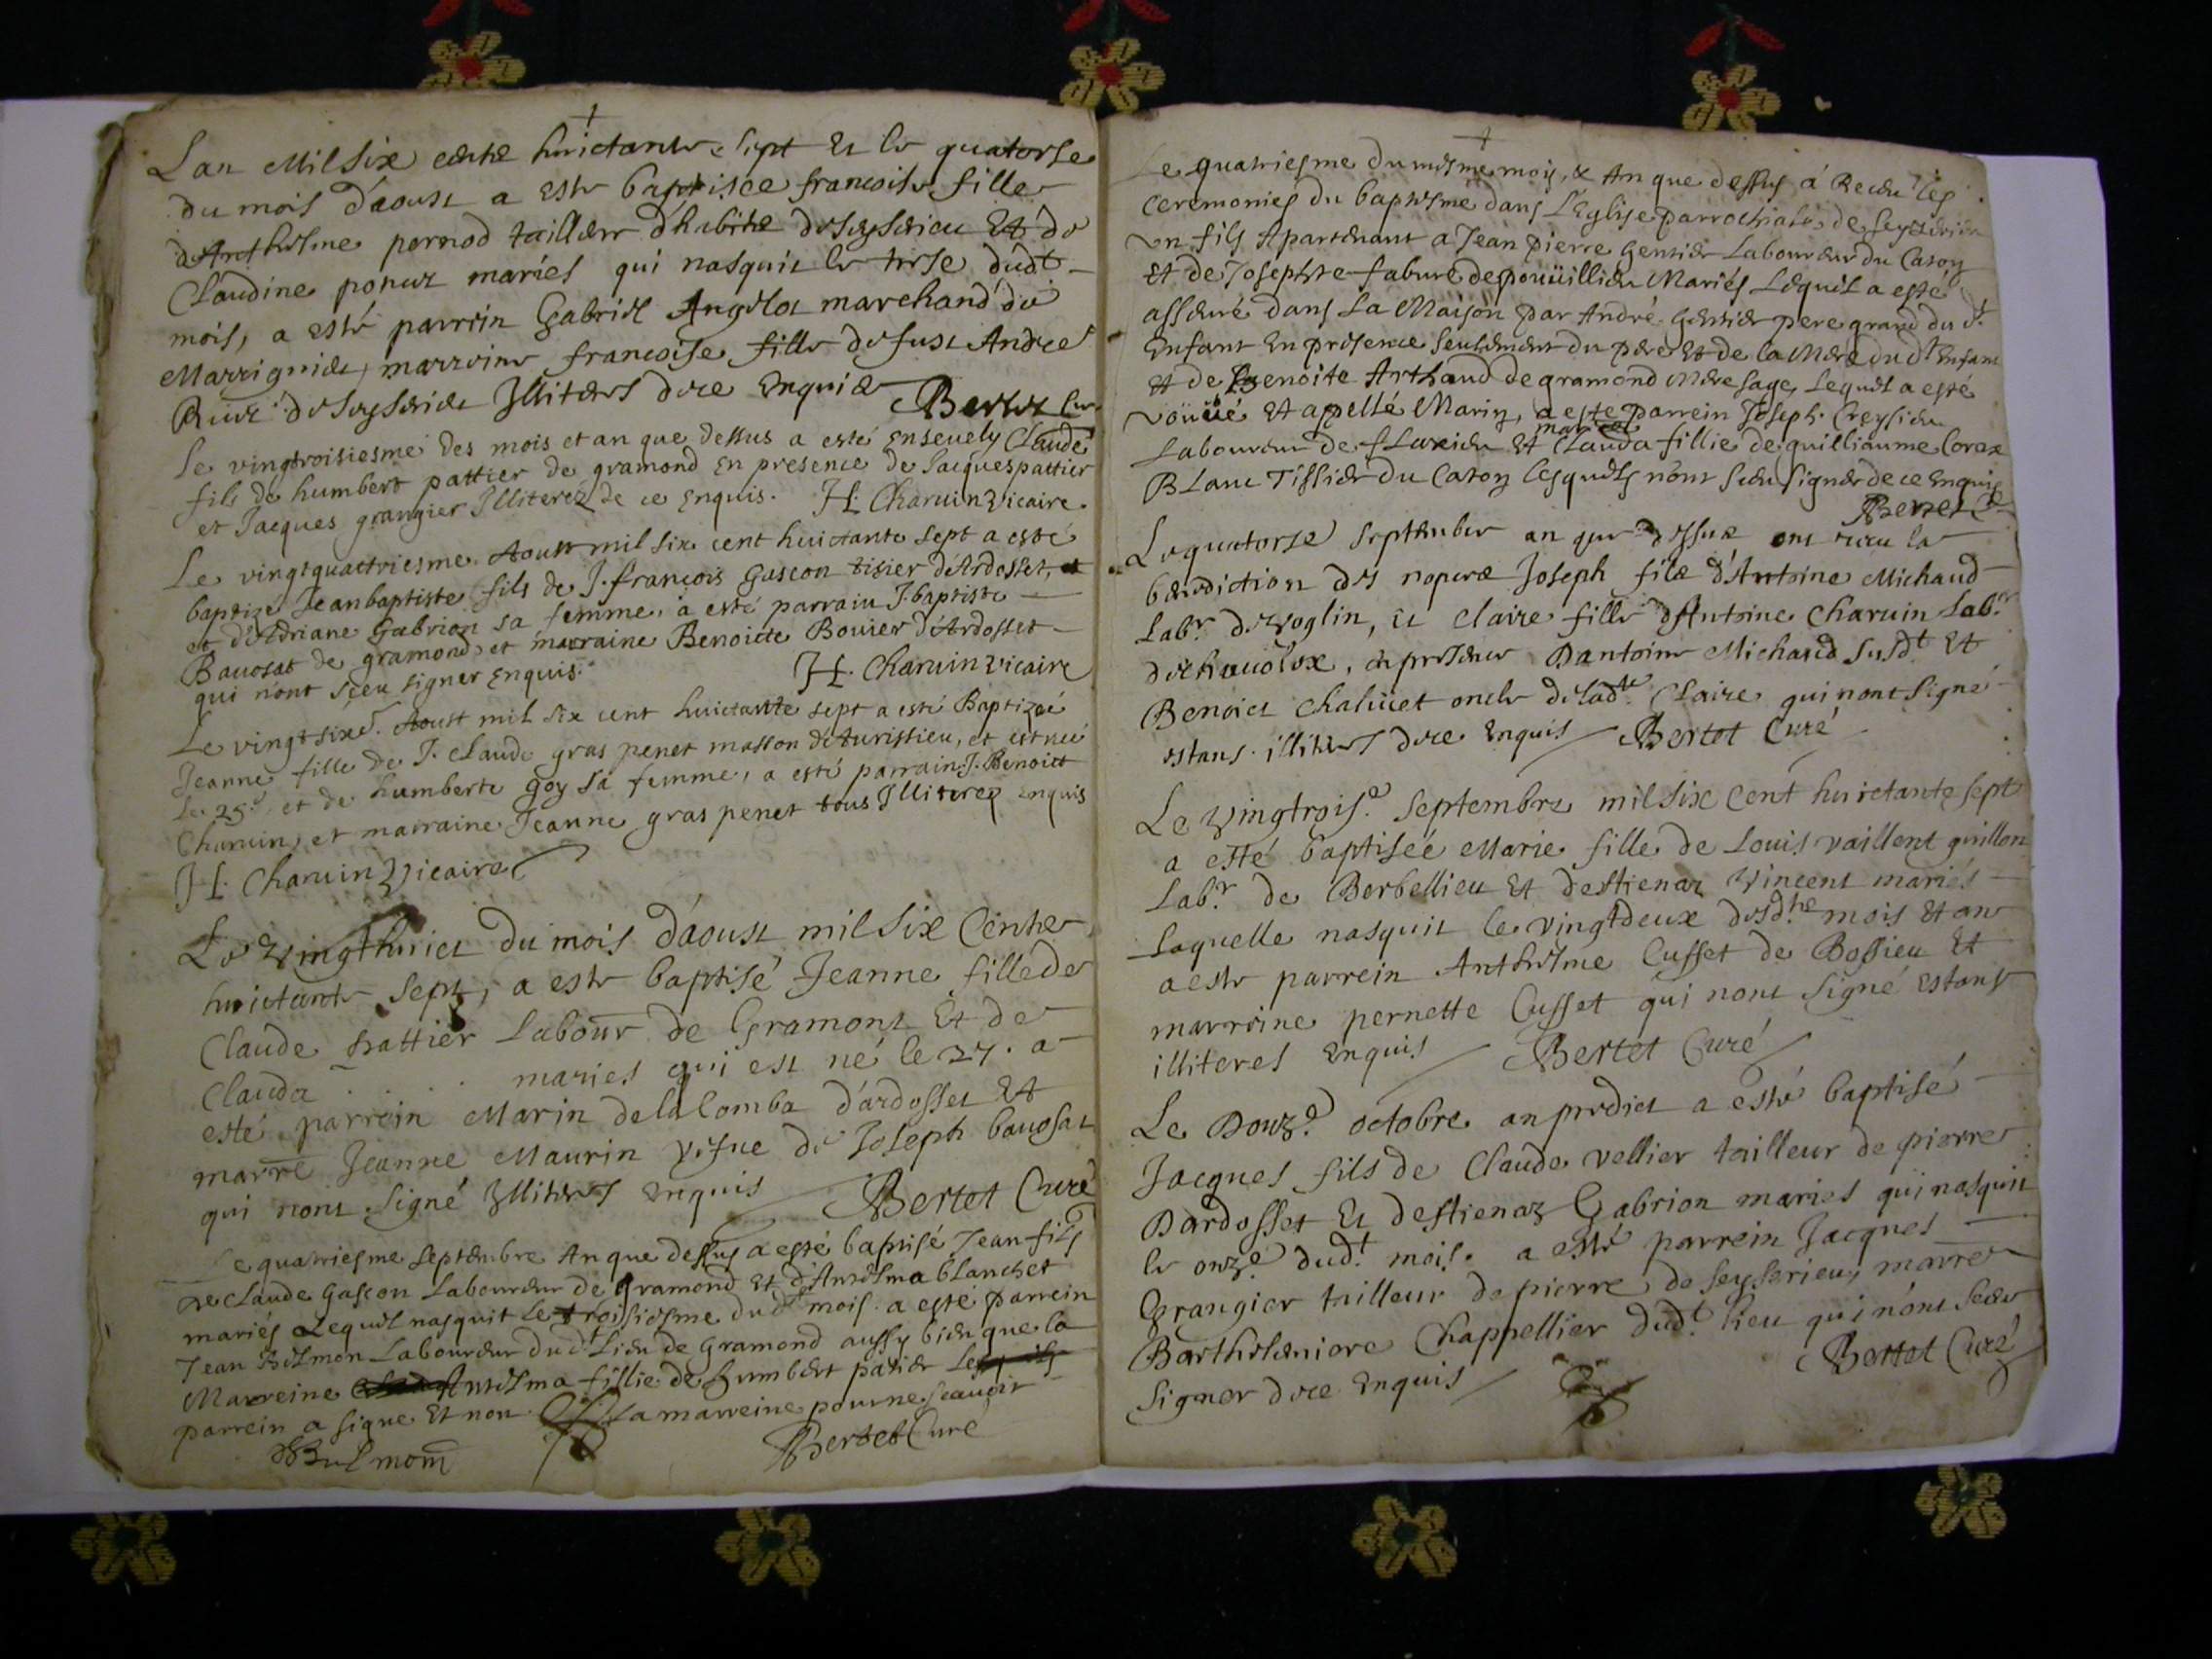 Lan Mil six cents huictante sept Et le quatorse
du mois d'aoust a esté baptisee francoise fille
d'Anthelme pernod tailleur d'habits de seyserieu Et de
Claudine ponuz mariés qui nasquit le trese dudt
mois, a esté parrein Gabriel marchand de
Marrignieu, marreine francoise fille de fust André
de seyserieu Illiteres de ce Enquis Bertet Cur
le vingtroisiesme des mois et an que dessus a esté ensevely Claude
fils de humbert pattier de gramond En presence de Jacques pattier
et Jacques grangier Illiterez de ce enquis. H. Charuin vicaire
Le vingtquattriesme Aoust mil six cent huictante sept a esté
baptizé Jeanbaptiste fils de J. françois Gascon tisier d'Ardosset, et
et d'Adriane Gabrion sa femme, a esté parrain J. baptiste
Bauosat de gramond et marraine Benoicte Bouier d'Ardosset
qui n'ont sçeu signer Enquis. H. Charuin vicaire
Le vingt sixe. Aoust mil six cent huictante sept a esté Baptizée
Jeanne fille de J. Claude gras penet masson d'Auristieu, et est née
le 25e. et de humberte Goy sa femme, a esté parrain J. Benoict
Charuin, et marraine Jeanne gras penet tous Illiterez Enquis
H. Charuin vicaire
Le vingthuict du mois d'aoust mil six Centz
huictante sept, a esté baptisé Jeanne fille de
Claude pattier Labour de Gramont Et de
Clauda . . . maries qui est né le 27. a
esté parrein Marin de la Comba d'ardosset Et
marre Jeanne Maurin vefue de Joseph bauosat
qui n'ont signé Illiteres Enquis Bertet Curé
Le quatriesme septembre An que dessus a esté baptisé Jean fils
de Claude Gascon Laboureur de gramond Et d'Antelma blanchet
mariés Lequel nasquit le troisiesme dudt mois. a esté parrein
Jean Belmon Laboureur dudt Lieu de Gramond aussy bien que la
Marreine Antelma fillie de humbert patier
parrein a signé Et non la marreine pour ne scauoir
Bertet Curé
Le quatriesme du mesme mois, & An que dessus á Receu les
ceremonies du baptesme dans L'Eglise parrochiale de seyserieu
un fils Apartenant a Jean pierre Gentier Laboureur du Caton
Et de Josephte fabure de pouüillieu Mariés Lequel a esté
asseuré dans la Maison par André Gentier pere grand du dt
Enfant En presence seulement du pere Et de la Mere dudt Enfant
Et de Benoite Arthaud de gramond Mere sage, Lequel a esté
voüüé Et apellé Marin, a esté parrein Joseph Creysieu
Laboureur de flaxieu Et Clauda fillie de guilliaume Corax
Blanc Tissier du Caton lesquels n'ont sceu signer de ce Enquis
Bertet
Le quatorse septembre an que dessus ont receu la
benediction des nopces Joseph fils d'Antoine Michaud
Labr. de voglin, Et Claire fille d'Antoine Charuin Labr.
de, en presence D'antoine Michaud susdt Et
Benoict Chaliüet oncle de ladte. Claire qui n'ont signé
estans illiteres de ce Enquis Bertet Curé
Le vingtroise. septembre mil six Cent huictante sept
a esté baptisée Marie fille de Louis vaillent guillon
Labr. de Berbellieu Et d'estienaz vincent mariés
laquelle nasquit le vingtdeux desdts mois Et an
a esté parrein Anthelme Cusset de Bossieu Et
marreine pernette Cusset qui n'ont signé Estans
illiteres Enquis Bertet Curé
Le Douze. octobre an predict a esté baptisé
Jacques fils de Claude vellier tailleur de pierre
Dardosset Et d'estienaz Gabrion maries qui nasquit
le onze. dudt. mois. a esté parrein Jacques
Grangier tailleur de pierre de seyserieu, marre
Barthelemiere Chappellier dudt. lieu qui n'ont sceu
signer de ce Enquis Bertet Curé